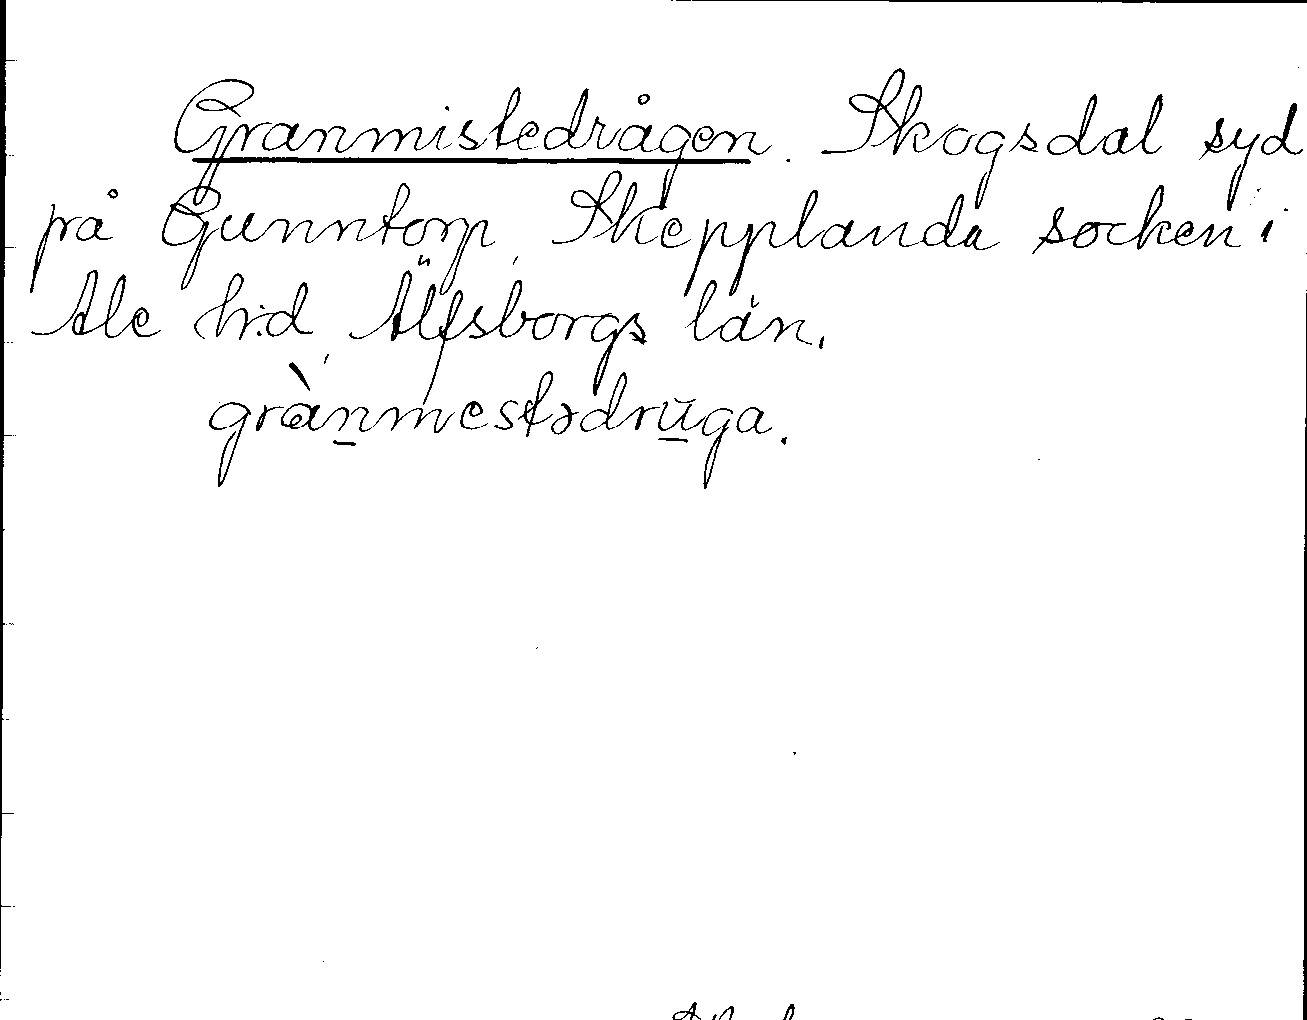 Granmistedrågen. Skogsdal syd
på Gunntorp, Skepplanda socken i
Ale h:d, Älfsborgs län.
grànmestədrūga.